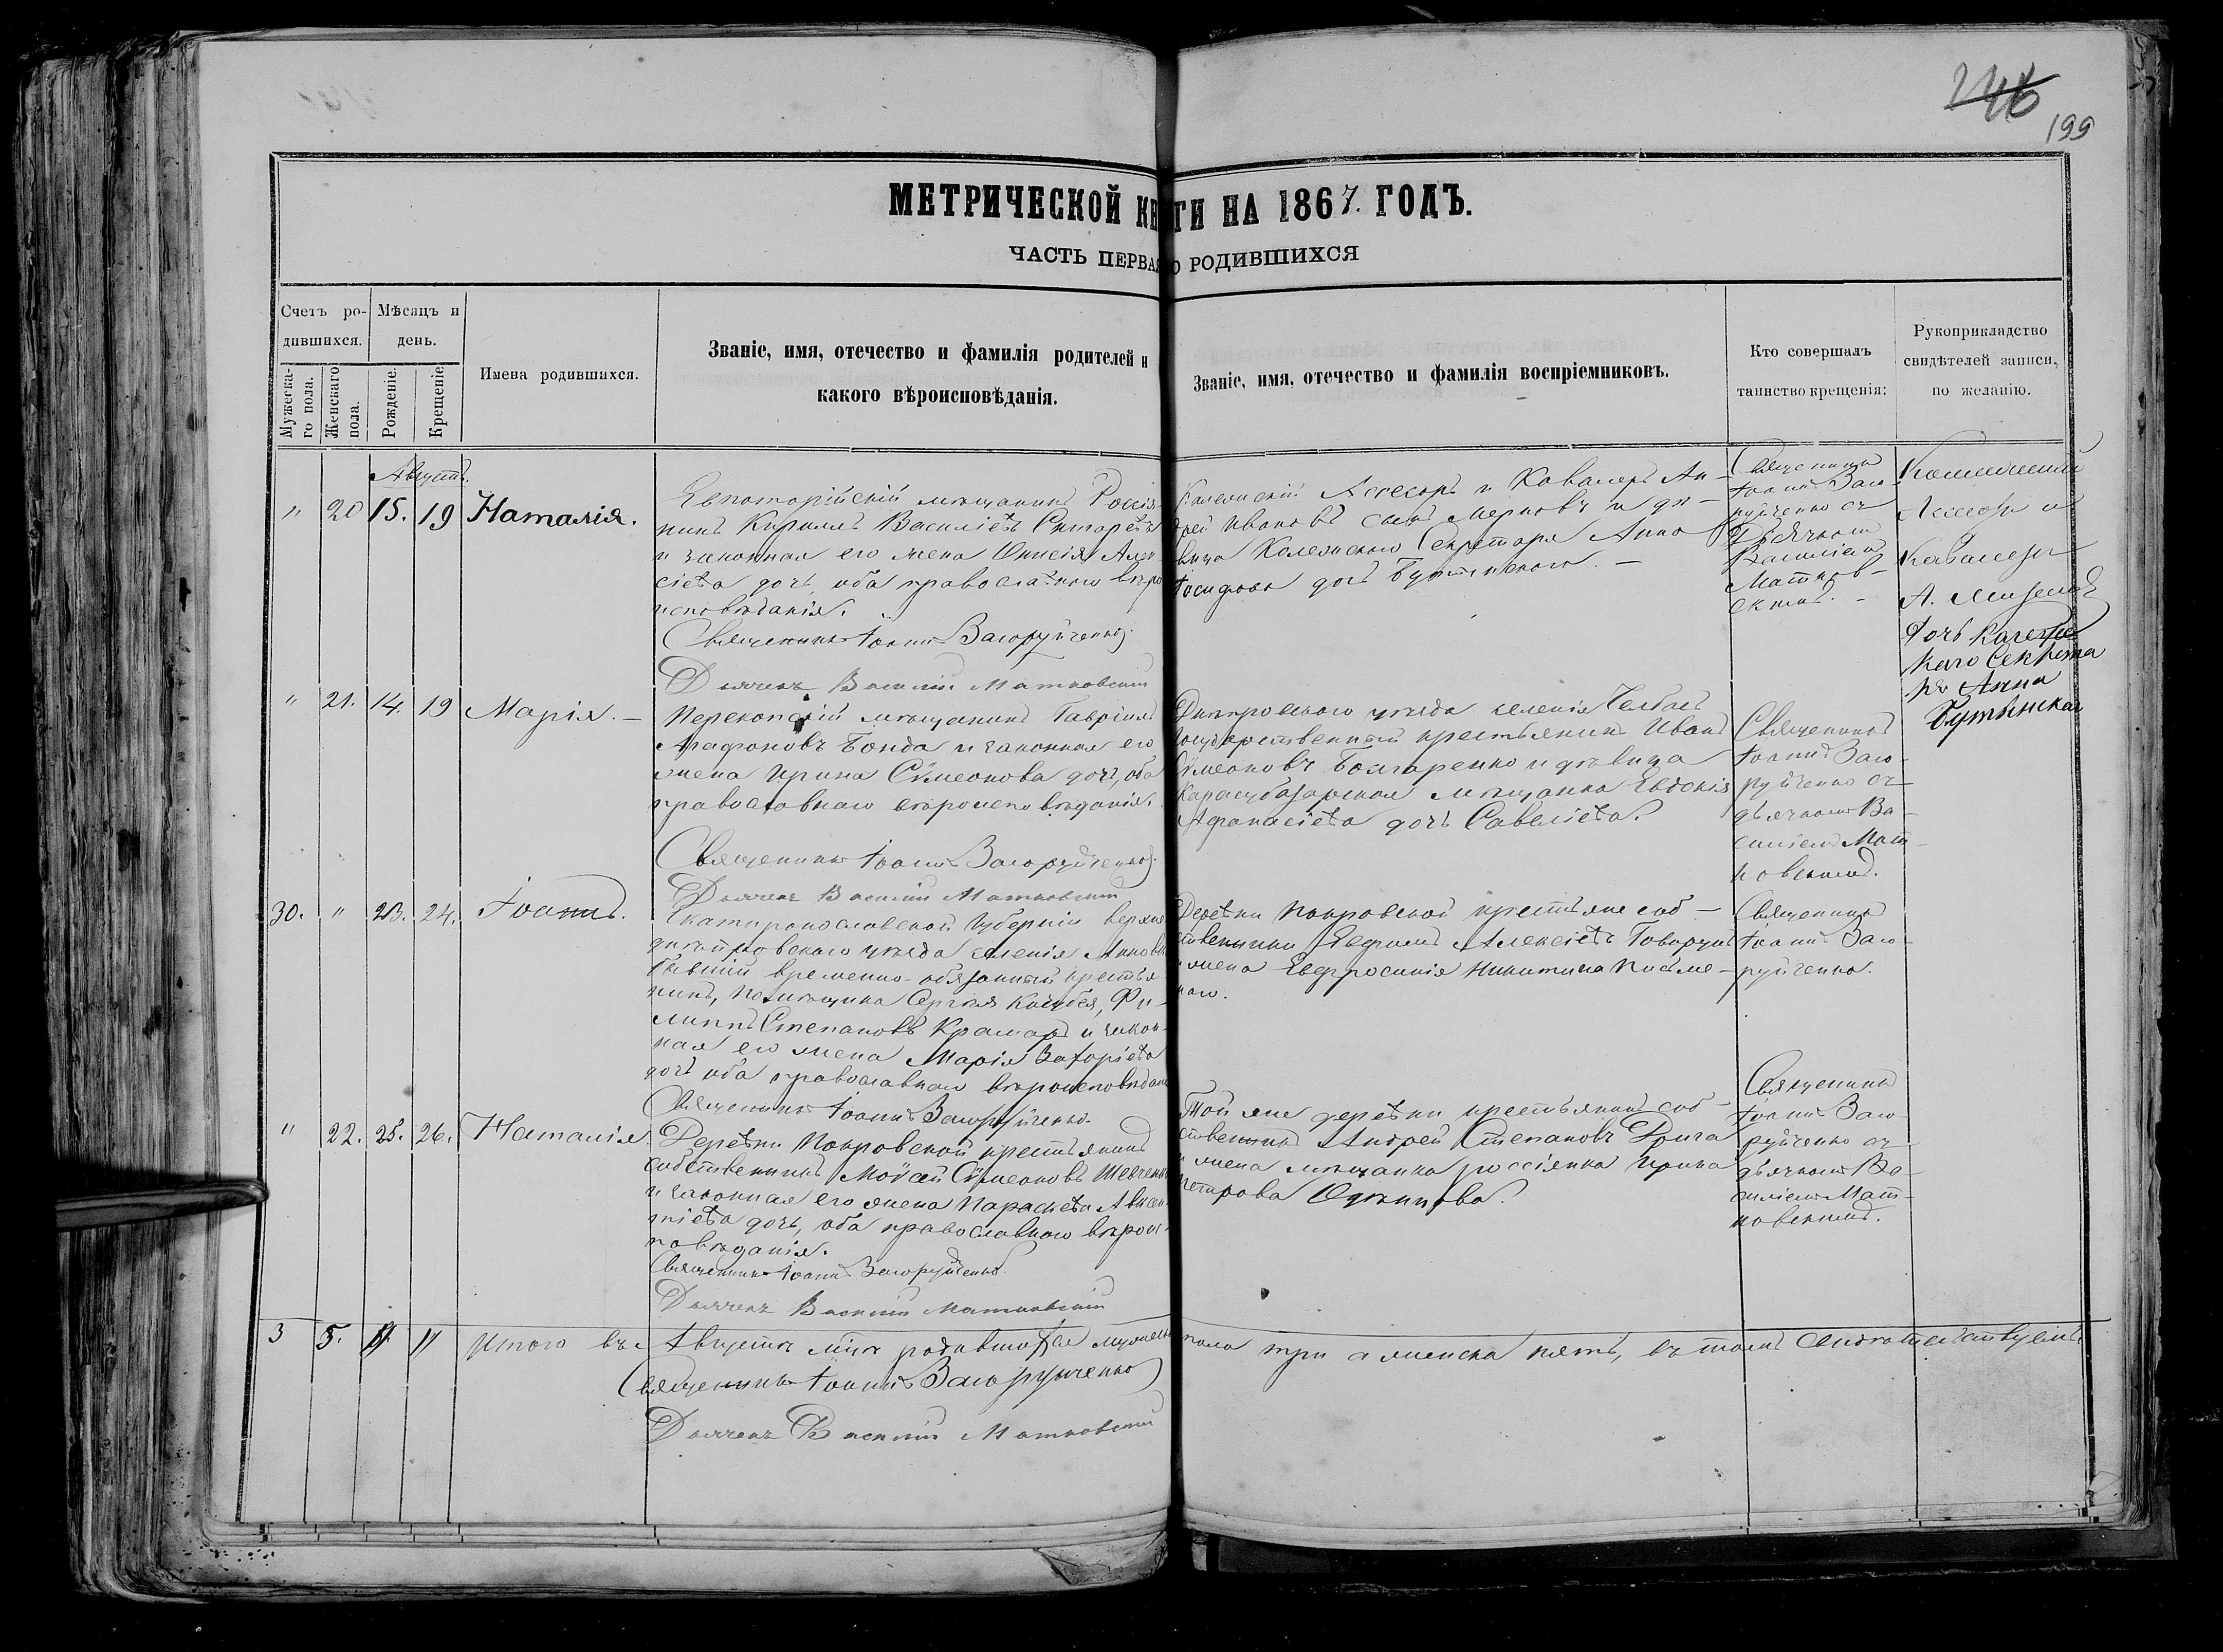 246
199
МЕТРИЧЕСКОЙ КНИГИ НА 1867. ГОДЪ.
ЧАСТЬ ПЕРВАЯ О РОДИВШИХСЯ
Счетъ ро-
дившихся.
Мужеска-
го пола.
Женскаго
пола.
Мѣсяцъ и
день.
Рожденіе.
Крещеніе.
Имена родившихся.
Званіе, имя, отечество и фамилія родителей и
какого вѣроисповѣданія.
Званіе, имя, отечество и фамилія воспріемниковъ.
Кто совершалъ
таинство крещенія:
Рукоприкладство
свидѣтелей записи,
по желанію.
Августъ.
" 20 15. 19 Наталія.
Евпаторійскій мѣщанинъ Россія
нинъ Кириллъ Василіевъ
и законная его жена Алек
сіева дочь, оба православнаго вѣро
исповѣданія.
Священникъ Іоаннъ Загоруйченко
Дьячекъ Василій Матковскій
Колежскій Ассесоръ и Кавалеръ Ан-
дрей Ивановъ сынъ и дѣ-
вица Колежскаго Секретаря Анна
Іосифова дочь Бутынскаго. —
Священникъ
Іоаннъ Заго-
руйченко съ
Дьячкомъ
Василіемъ
Матков-
скимъ. -
Коллежскій
Ассесоръ и
Кавалеръ
А.
дочь Колежс
каго Секрета
ря Анна
Бутынская
" 21. 14. 19 Марія. —
Перекопскій мѣщанинъ Гавріилъ
Агафоновъ Бонда и законная его
жена Ирина Сѵмеонова дочь, оба
православнаго вѣроисповѣданія.
Священникъ Іоаннъ Загоруйченко
Дьячекъ Василій Матковскій
Днѣпровскаго уѣзда селенія Челбасъ
государственный крестьянинъ Иванъ
Сѵмеоновъ Болгаренко и дѣвица
Карасубазарская мѣщанка Евдокія
Афанасіева дочь Савеліева.
Священникъ
Іоаннъ Заго-
руйченко съ
дьячкомъ Ва-
силіемъ Мат-
ковскимъ.
30. " 23. 24. Іоаннъ.
Екатиринославской Губерніи верхне
днѣпровскаго уѣзда селенія Анновки
бывшій временно-обязанный крестья
нинъ, помѣщика Сергѣя Кочубея, Фи-
липпъ Степановъ Крамарь и закон-
ная его жена Марія Захаріева
дочь оба православнаго вѣроисповѣдан
Священникъ Іоаннъ Загоруйченко.
Деревни Покровской крестьяне соб-
ственники Ефимъ Алексіевъ Говорунъ
и жена Евфросинія Никитина Писме-
наго.
Священникъ
Іоаннъ Заго-
руйченко.
" 22. 25. 26. Наталія.
Деревни Покровской крестьянинъ
собственникъ Моѵсей Сѵмеоновъ Шевченко
и законная его жена Параскева Авксен
тіева дочь, оба православнаго вѣроис
повѣданія.
Священникъ Іоаннъ Загоруйченко
Дьячекъ Василій Матковскій
Той же деревни крестьянинъ соб-
ственникъ Андрей Степановъ Дрига
и жена мѣщанка россіянка Ирина
Петрова
Священникъ
Іоаннъ Заго-
руйченко съ
дьячкомъ Ва-
силіемъ Мат-
ковскимъ.
3 5. " " Итого въ Августѣ мѣсяцѣ родившихся мужеска пола три а женска пять, въ томъ свидѣтельствуемъ
Священникъ Іоаннъ Загоруйченко
Дьячекъ Василій Матковскій